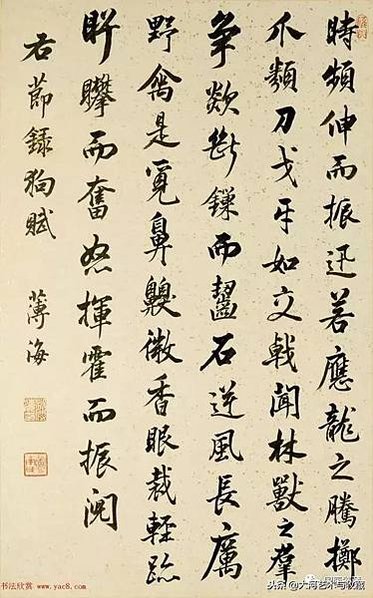 時頻伸而振迅若應龍之騰擲
爪類刀戈牙如交戟聞林獸之羣
争欻斷鏁而齧石逆風長厲
野禽是覓鼻齅微香眼裁輕跡
而奮怒揮霍而振
右節録狗賦 薄海
书法欣赏 www.yac8.com
头条 @大河艺术与收藏